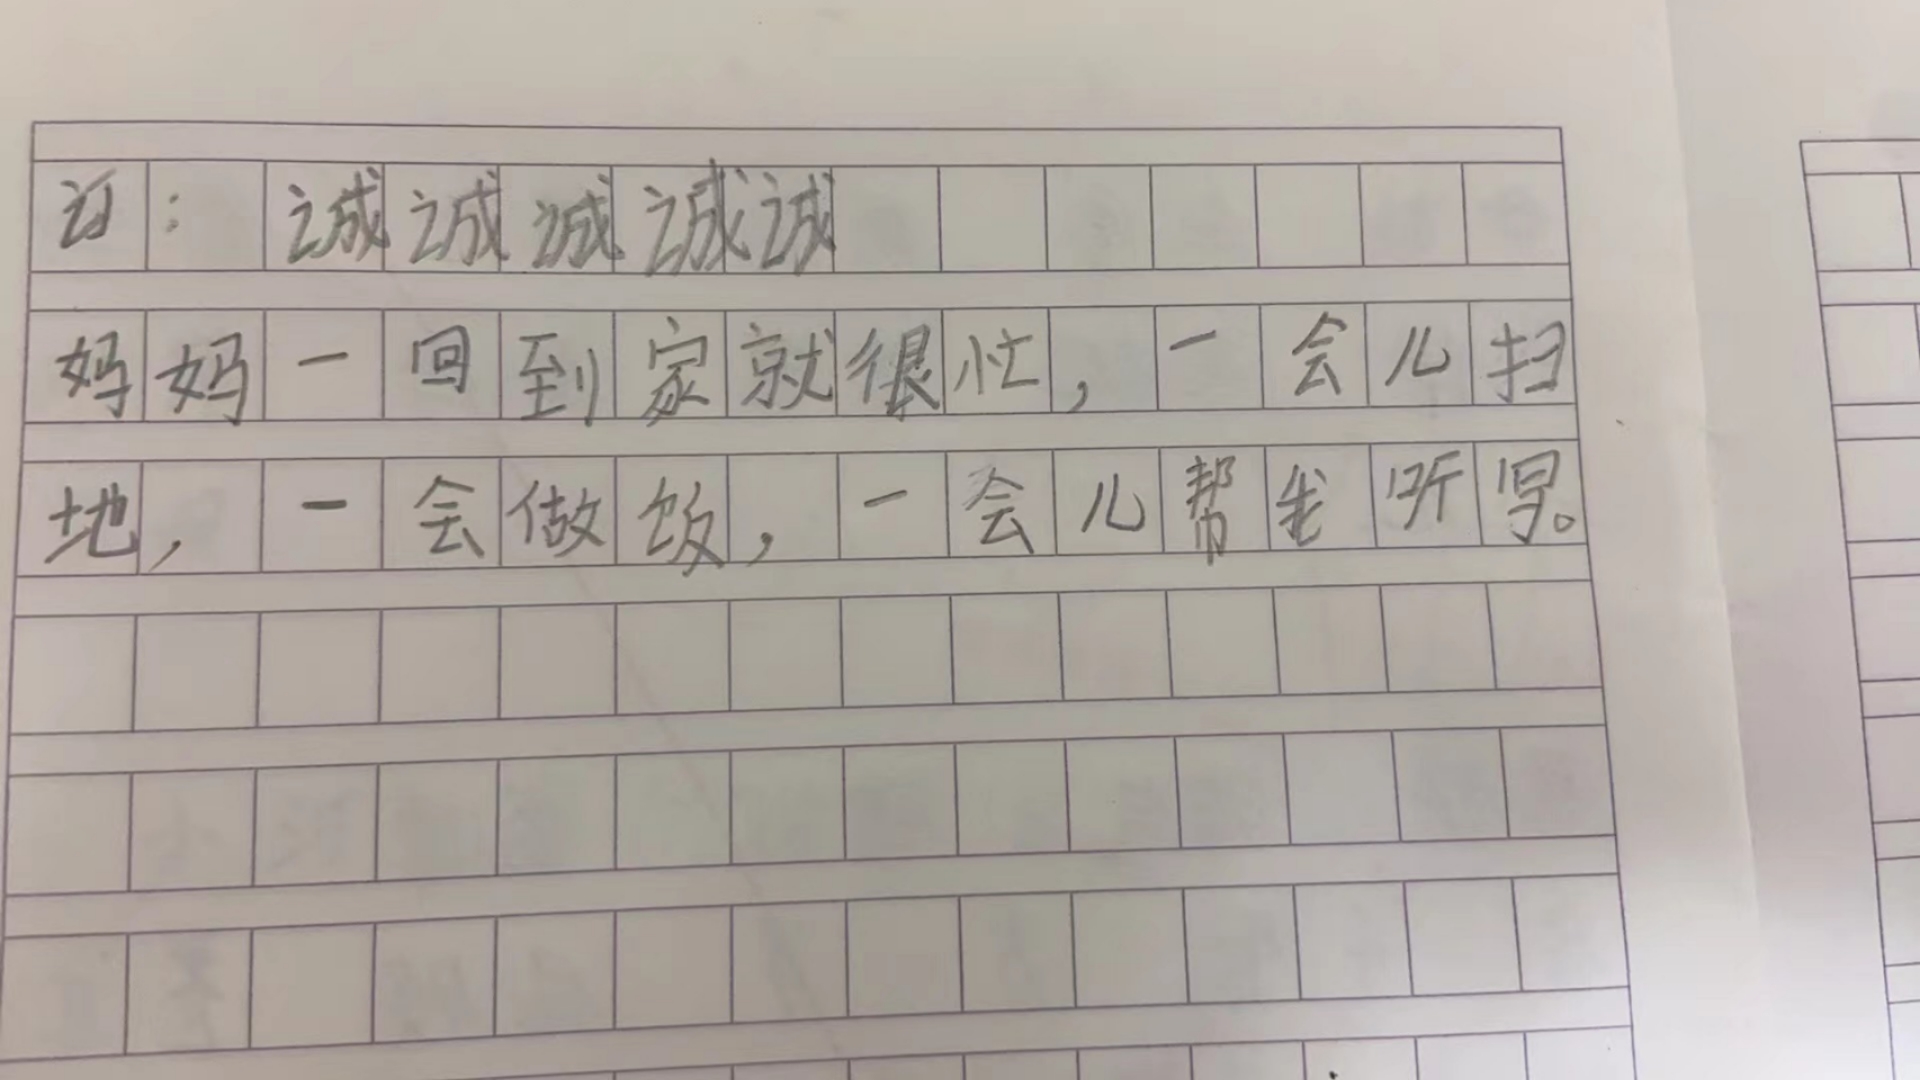 订：诚诚诚诚诚
妈妈一回到家就很忙，一会儿扫
地，一会做饭，一会儿帮我听写。